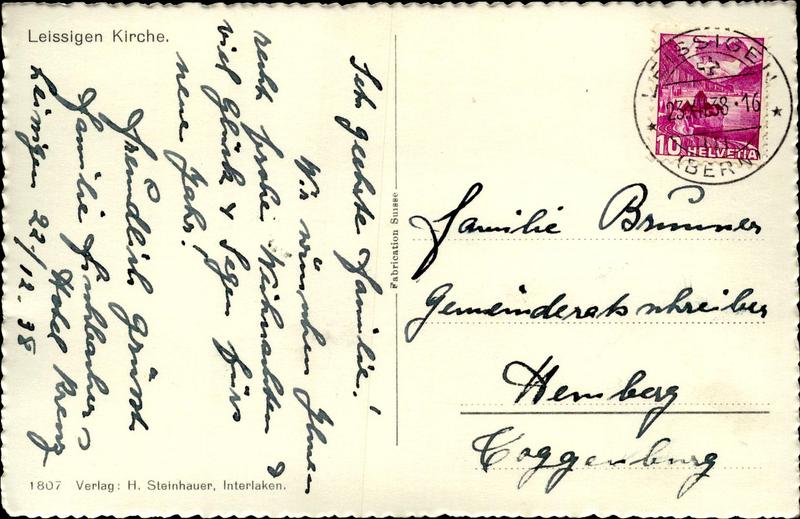 Leissigen Kirche.
Sehr geehrte Familie!
Wir wünschen Ihnen
recht frohe Weihnachten &
viel Glück & Segen fürs
neue Jahr.
Freundlich grüsst
Familie
Hotel Kreuz
Leissigen 22/12.38
1807 Verlag: H. Steinhauer, Interlaken.
Fabrication Suisse
LEISSIGEN
23.XII.38.16
(BERN)
10 HELVETIA
Familie Brunner
Gemeinderatschreiber
Hemberg
Toggenburg